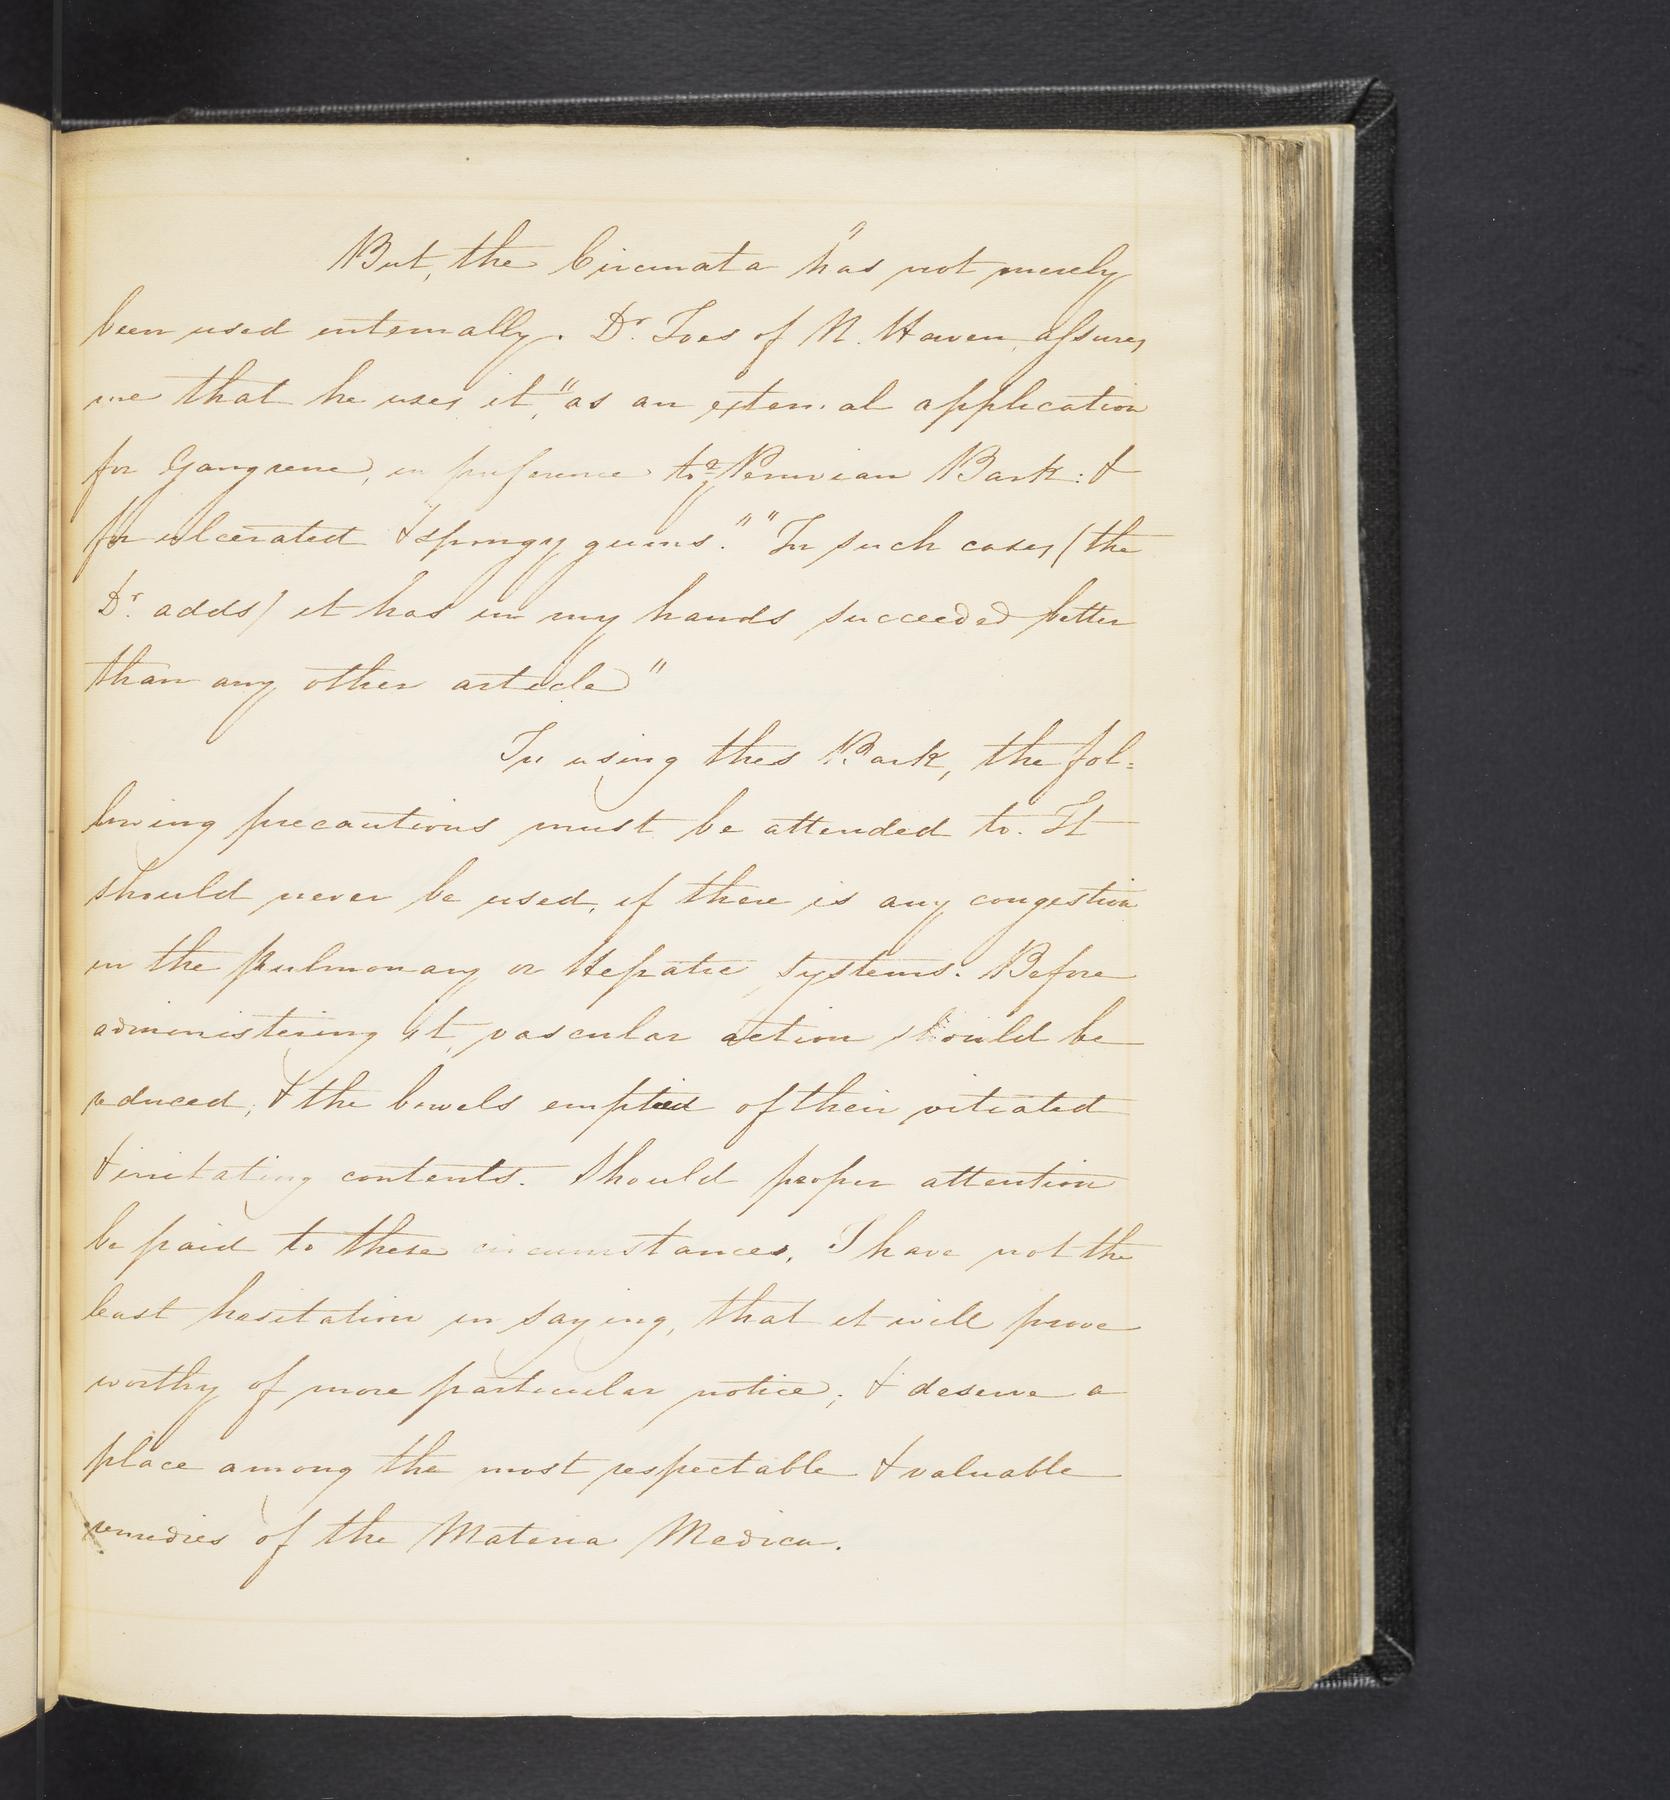 But, the Circinata "has not merely
been used internally. Dr. Ives of N. Haven, assures
me that he uses it, "as an external application
for Gangrene, in preference to Peruvian Bark: &
for ulcerated & spongy gums." "In such cases (the
Dr. adds) it has in my hands succeeded better
than any other article"
In using this Bark, the fol=
lowing precautions must be attended to. It
should never be used, if there is any congestion
in the Pulmonary or Hepatic systems. Before
administering it, vascular action should be
reduced; & the bowels emptied of their vitiated
& irritating contents. Should proper attention
be paid to these circumstances, I have not the
least hesitation in saying, that it will prove
worthy of more particular notice; & deserve a
place among the most respectable & valuable
remedies of the Materia Medica.